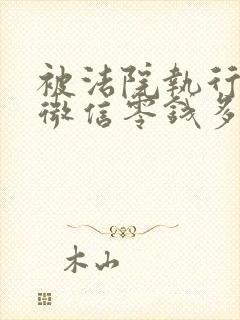 被法院执行
微信零钱多
木山